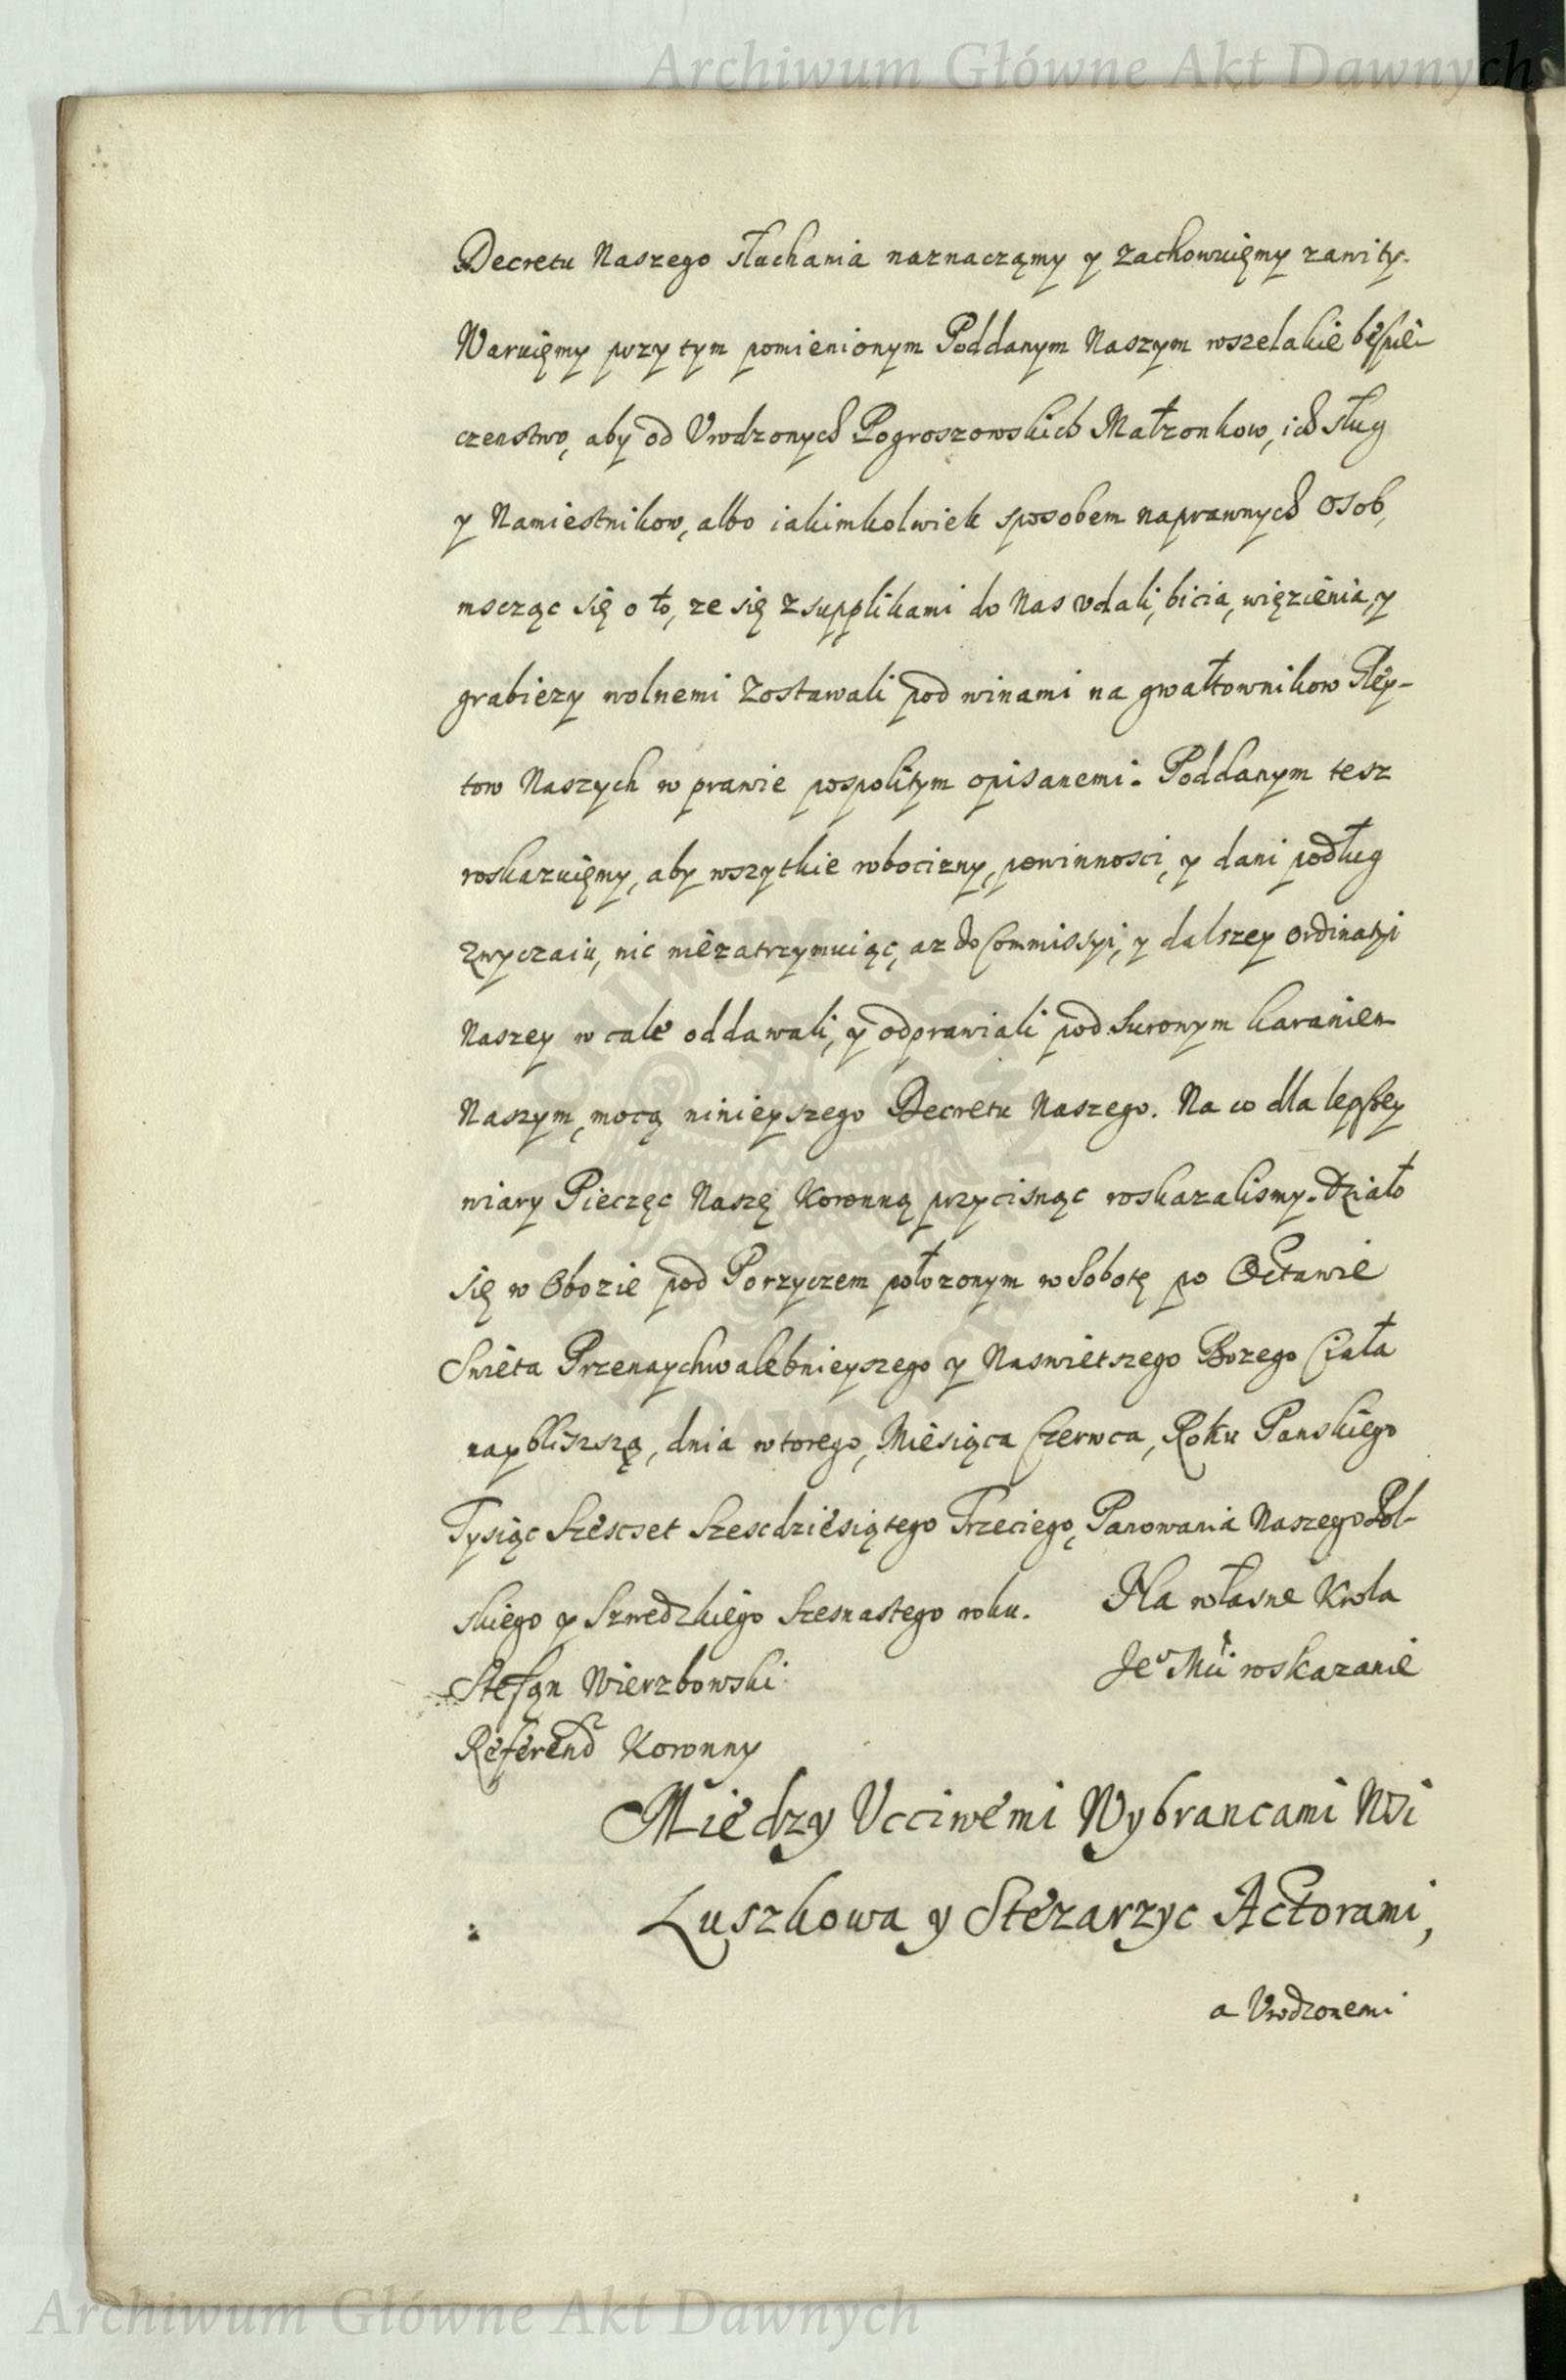 Archiwum Główne Akt Dawnych
Decretu Naszego słuchania naznaczamy y zachowuięmy zawity.
Waruięmy przy tym pomienionym Poddanym Naszym wszelakie bespie-
czenstwo, aby od Vrodzonych Pogroszowskich Małzonkow, ich sług
y Namiestnikow, albo iakimkolwiek sposobem naprawnych osob,
mscząc się o to, ze się z supplikami do Nas vdali, bicia, więzienia, y
grabiezy wolnemi zostawali pod winami na gwałtownikow Gley-
tow Naszych w prawie pospolitym opisanemi. Poddanym tesz
roskazuięmy, aby wszytkie robocizny, powinnosci, y dani podług
zwyczaiu, nic niezatrzymuiąc, az do Commissyi, y dalszey ordinatyi
Naszey w cale oddawali, y odprawiali pod surowym karaniem
Naszym, mocą ninieyszego Decretu Naszego. Na co dla lepszey
wiary Pieczęc Naszę Koronną przycisnąc roskazalismy. Działo
się w Obozie pod Porzyczem położonym w Sobotę po Octawie
Swięta Przenaychwalebnieyszego y Naswietszego Bozego Ciała
naybliszszą, dnia wtorego, Miesiąca Czerwca, Roku Panskiego
Tysiąc Szescset Szescdziesiątego Trzeciego, Panowania Naszego Pol-
skiego y Szwedzkiego Szesnastego roku. Na własne Krola
Stefan Wierzbowski Jeo Mci roskazanie
Referend Koronny
Miedzy Vcciwemi Wybrancami Wsi
Luszkowa y Stezarzyc Actorami,
a Vrodzonemi
Archiwum Główne Akt Dawnych